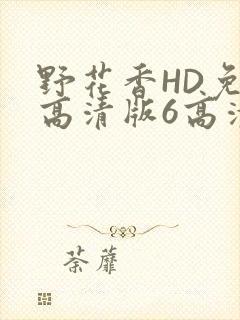 野花香HD免
高清版6高清
荼蘼